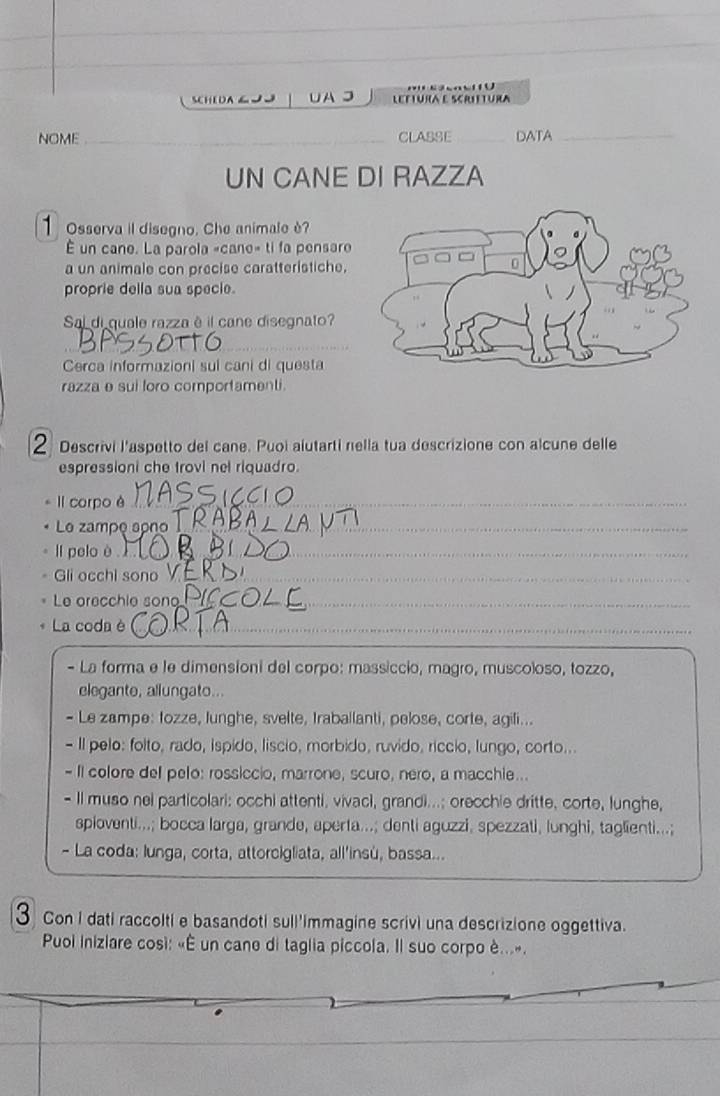 SCHEDA UA 3 LETTURA E SCRITTURA
NOME CLASSE DATA
UN CANE DI RAZZA
1 Osserva il disegno. Che animale è?
È un cane. La parola «cane» ti fa pensare
a un animale con precise caratteristiche,
proprie della sua specie.
Sai di quale razza è il cane disegnato?
BASSOTTO
Cerca informazioni sui cani di questa
razza e sui loro comportamenti.
2 Descrivi l'aspetto del cane. Puoi aiutarti nella tua descrizione con alcune delle
espressioni che trovi nel riquadro.
• Il corpo è MASSICCIO
• Le zampe sono TRABALLANTI
• Il pelo è MORBIDO
• Gli occhi sono VERDI
• Le orecchie sono PICCOLE
• La coda è CORTA
- La forma e le dimensioni del corpo: massiccio, magro, muscoloso, tozzo,
elegante, allungato...
- Le zampe: tozze, lunghe, svelte, traballanti, pelose, corte, agili...
- Il pelo: folto, rado, ispido, liscio, morbido, ruvido, riccio, lungo, corto...
- Il colore del pelo: rossiccio, marrone, scuro, nero, a macchie...
- Il muso nei particolari: occhi attenti, vivaci, grandi...; orecchie dritte, corte, lunghe,
spioventi...; bocca larga, grande, aperta...; denti aguzzi, spezzati, lunghi, taglienti...;
- La coda: lunga, corta, attorcigliata, all'insù, bassa...
3 Con i dati raccolti e basandoti sull'immagine scrivi una descrizione oggettiva.
Puoi iniziare così: «È un cane di taglia piccola. Il suo corpo è...».